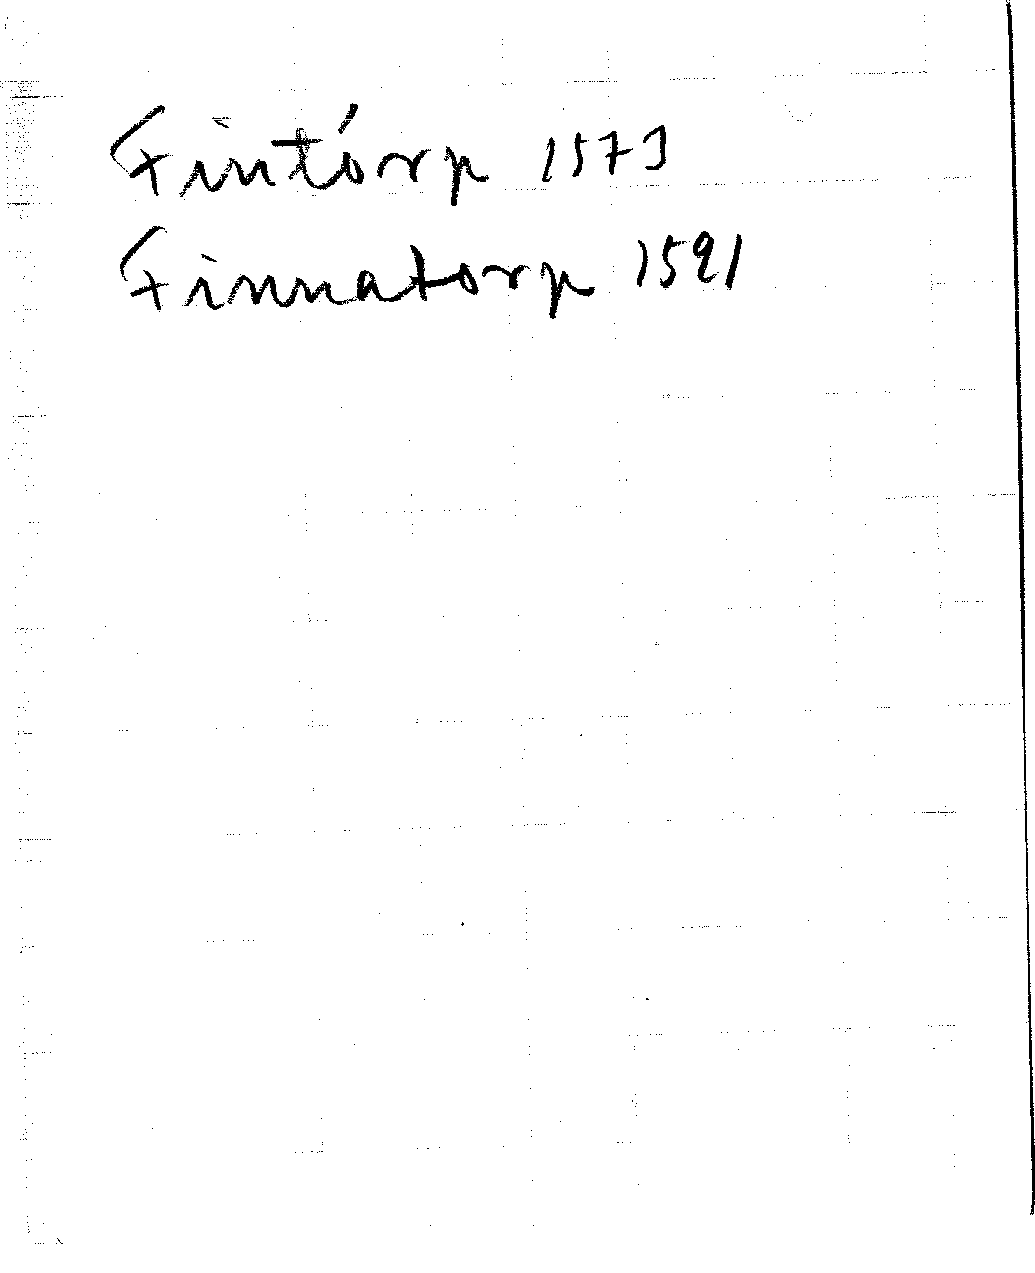 Fintórp 1573
Finnatorp 1591